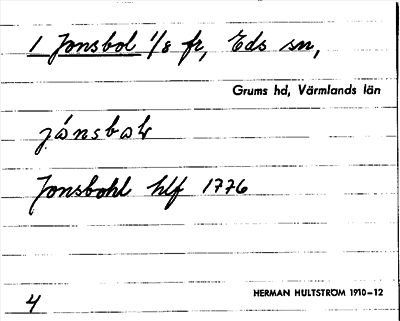 1 Jonsbol 1/8 fr, Eds sn,
Grums hd, Värmlands län
jónsbok
Jonsbohl hlf 1776
4
HERMAN HULTSTRÖM 1910–12